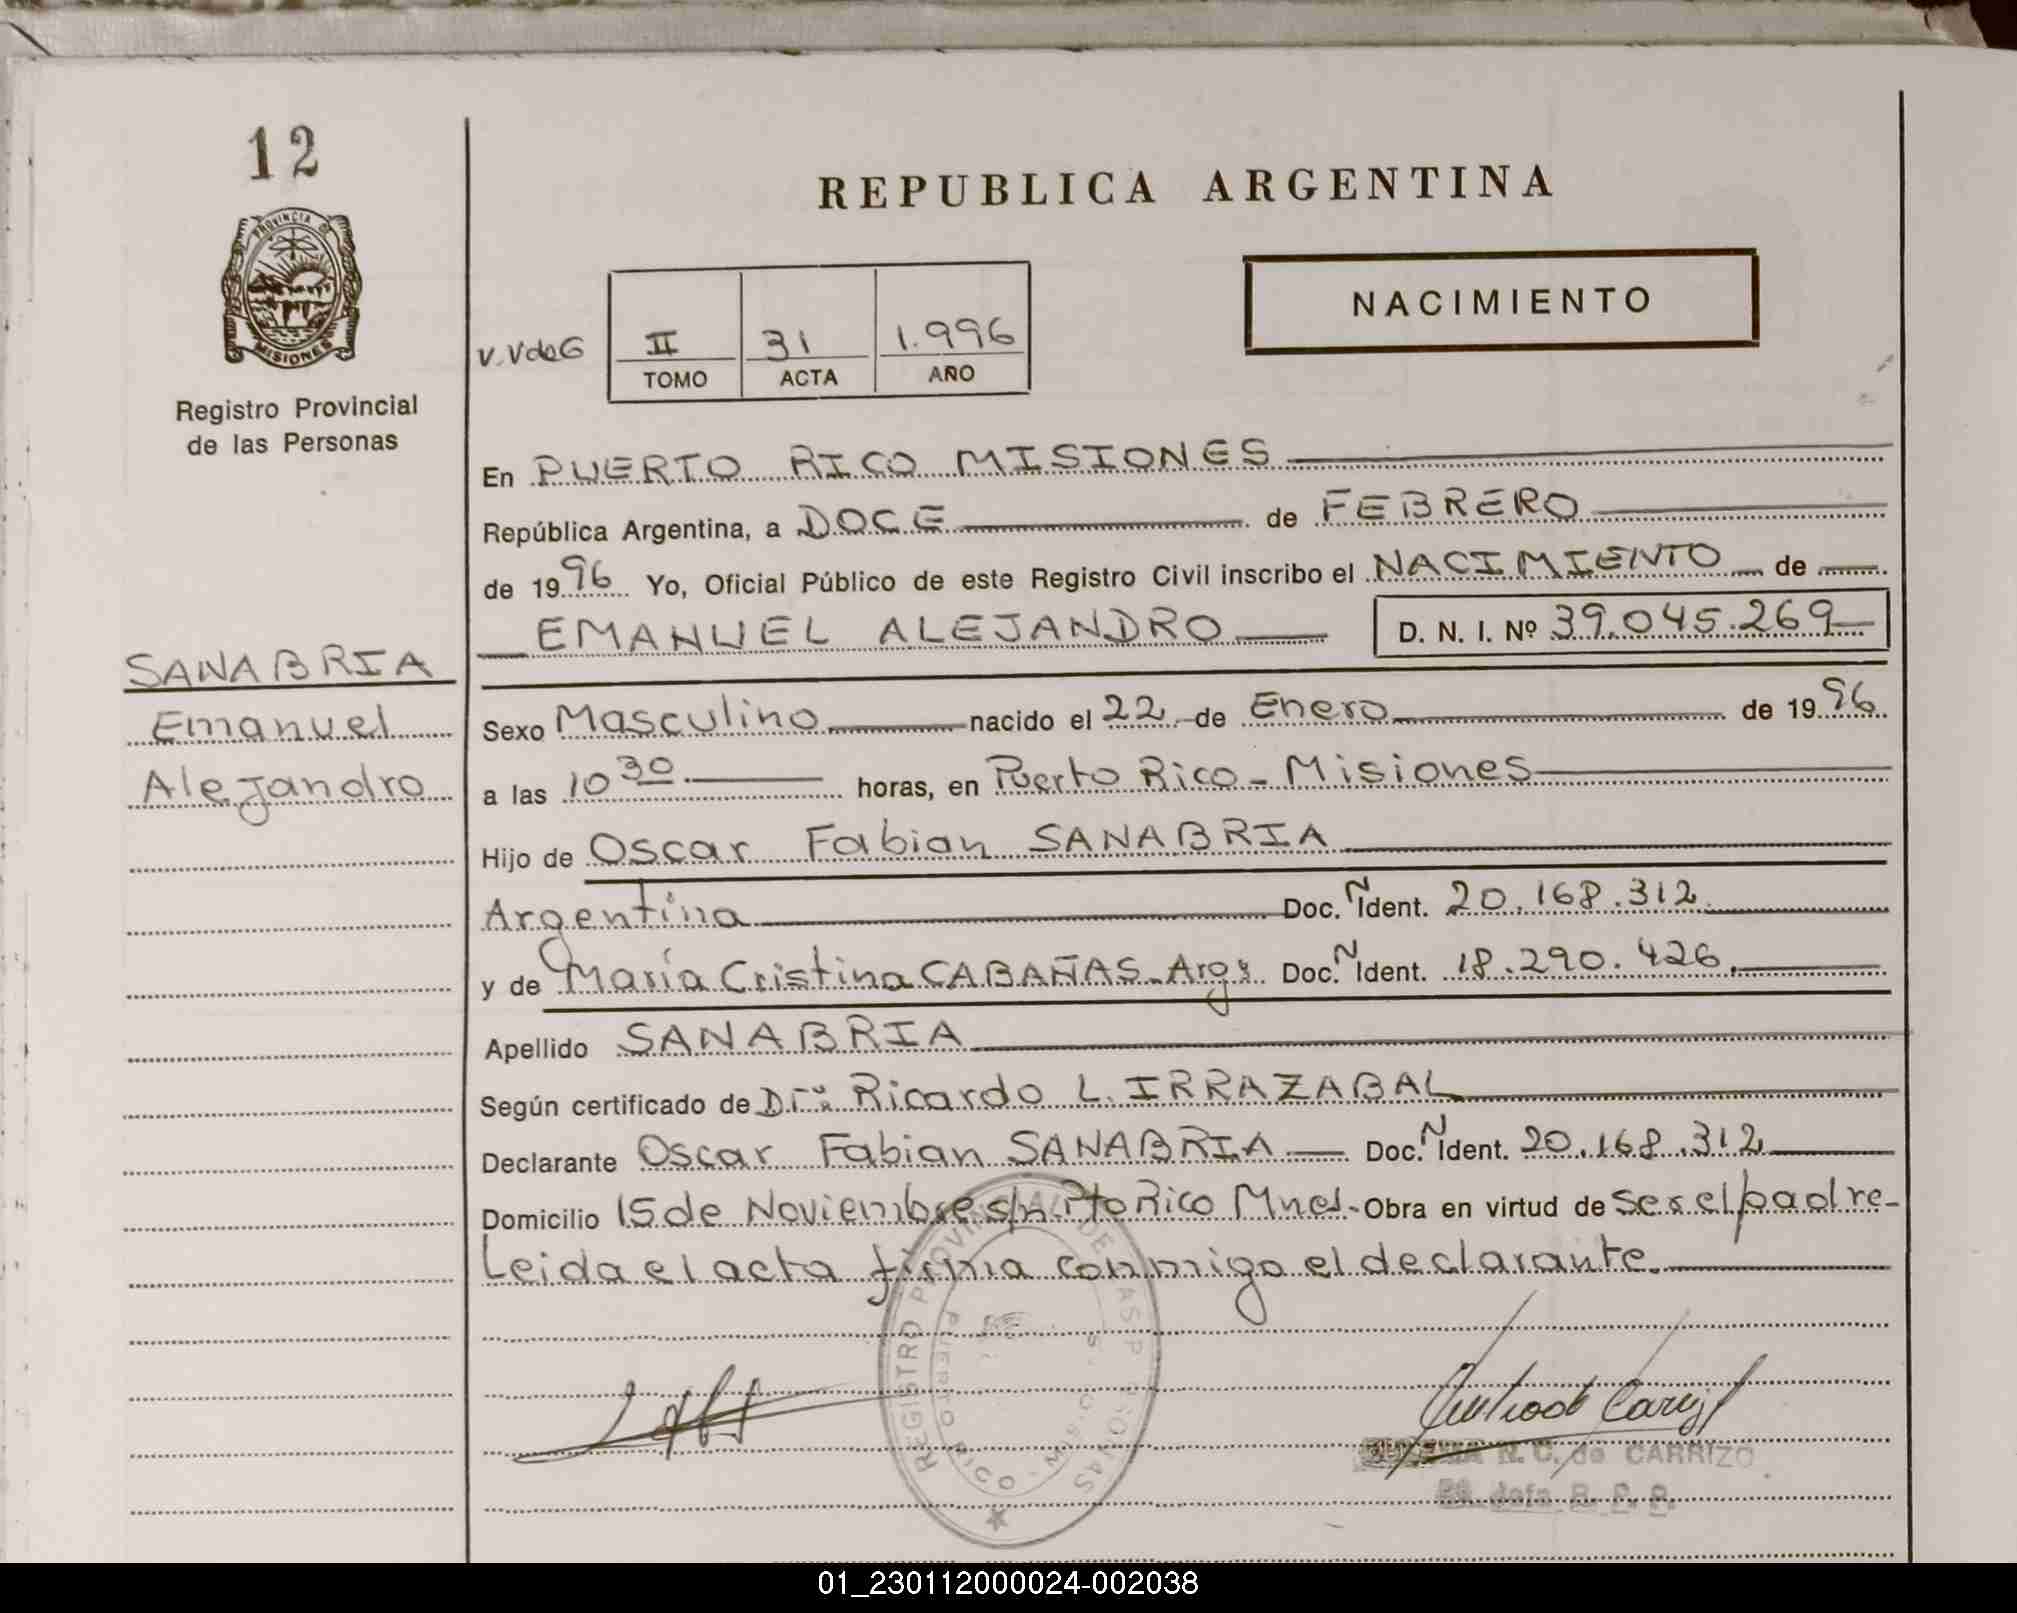 12
PROVINCIA DE
MISIONES
Registro Provincial
de las Personas
SANABRIA
Emanuel
Alejandro
REPUBLICA ARGENTINA
NACIMIENTO
V.VdeG
II 31 1.996
TOMO ACTA AÑO
En PUERTO RICO MISIONES
República Argentina, a DOCE de FEBRERO
de 1996 Yo, Oficial Público de este Registro Civil inscribo el NACIMIENTO de
EMANUEL ALEJANDRO D. N. I. Nº 39.045.269
Sexo Masculino nacido el 22 de Enero de 1996
a las 10 30 horas, en Puerto Rico - Misiones
Hijo de Oscar Fabian SANABRIA
Argentina Doc. N Ident. 20.168.312
y de María Cristina CABAÑAS - Arg. Doc. N Ident. 18.290.426
Apellido SANABRIA
Según certificado de Dr: Ricardo L. IRRAZABAL
Declarante Oscar Fabian SANABRIA Doc. N Ident. 20.168.312
Domicilio 15 de Noviembre s/n Pto Rico Mnes. Obra en virtud de ser el padre -
Leida el acta firma conmigo el declarante.
REGISTRO PROVINCIAL DE LAS PERSONAS
PUERTO RICO - MISIONES
N. C. de CARRIZO
Jefa R. P. P.
01_230112000024-002038